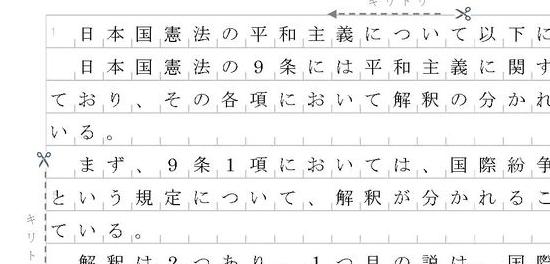 キリトリ
1 日本国憲法の平和主義について以下に
日本国憲法の9条には平和主義に関す
ており、その各項において解釈の分かれ
いる。
まず、9条1項においては、国際紛争
という規定について、解釈が分かれるこ
ている。
解釈は2つあり、1つ目の説は、国際
キリト